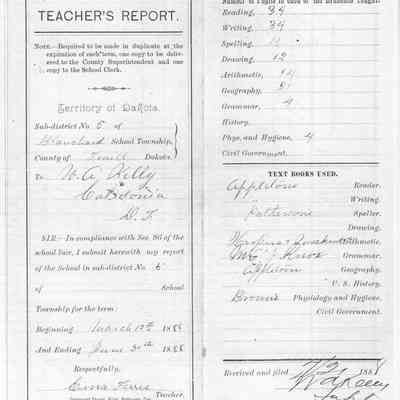 TEACHER'S REPORT.
NOTE.—Required to be made in duplicate at the
expiration of each term, one copy to be deliv-
ered to the County Superintendent and one
copy to the School Clerk.
Territory of Dakota.
Sub-district No 5 of
Blanchard School Township,
County of Traill Dakota.
To W. A. Kelly
Caledonia
D. T.
SIR:—In compliance with Sec. 86 of the
school law, I submit herewith my report
of the School in sub-district No 5
of School
Township for the term:
Beginning March 12th 1888
And Ending June 30th 1888
Respectfully,
Teacher.
Reading, 34
Writing, 34
Spelling,
Drawing, 12
Arithmetic,
Geography,
Grammar, 4
History,
Phys. and Hygiene, 4
Civil Government.
TEXT BOOKS USED.
Appletons Reader.
" Writing.
Pattersons Speller.
Drawing.
Arithmetic.
Grammar.
Appleton Geography.
U. S. History.
Browns Physiology and Hygiene,
Civil Government.
Received and filed 188